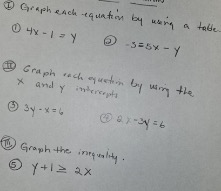 Ⅰ Graph each equation by using a table.
① 4x - 1 = y ② -3 = 5x - y
Ⅱ Graph each equation by using the
x and y intercepts
③ 3y - x = 6 ④ -3y = 6
Ⅲ Graph the inequality.
⑤ y + 1 ≥ 2x